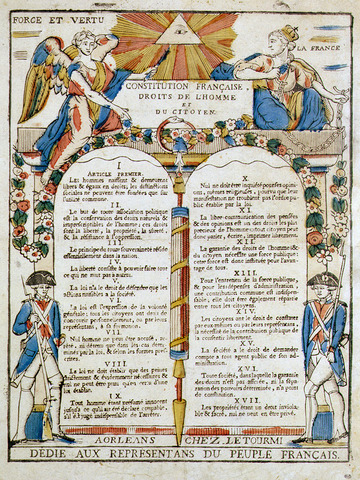 FORCE ET VERTU
LA FRANCE
CONSTITUTION FRANÇAISE,
DROITS DE L'HOMME
ET
DU CITOYEN.
I
ARTICLE PREMIER.
Les hommes naissent & demeurent
libres & égaux en droits; les distinctions
sociales ne peuvent être fondées que sur
l'utilité commune.
II.
Le but de toute association politique
est la conservation des droits naturels &
imprescriptibles de l'homme; ces droits
sont la liberté, la propriété, la sûreté
& la résistance à l'oppression.
III.
Le principe de toute souveraineté réside
essentiellement dans la nation.
IV.
La liberté consiste à pouvoir faire tout
ce qui ne nuit pas à autrui.
V.
La loi n'a le droit de défendre que les
actions nuisibles à la société.
VI.
La loi est l'expression de la volonté
générale; tous les citoyens ont droit de
concourir personnellement, ou par leurs
représentans, à sa formation.
VII.
Nul homme ne peut être accusé,
ni détenu que dans les cas déter-
minés par la loi, & selon les formes
prescrites.
VIII.
La loi ne doit établir que des peines
strictement & évidemment nécessaires &
nul ne peut être puni qu'en vertu d'une
loi établie.
IX.
Tout homme étant présumé innocent
jusqu'à ce qu'il ait été déclaré coupable,
s'il est jugé indispensable de l'arrêter.
X.
Nul ne doit être inquiété pour ses opinions,
mêmes religieuses, pourvu que leur
manifestation ne troublent pas l'ordre public
établi par la loi.
XI.
La libre communication des pensées
& des opinions est un des droits les plus
précieux de l'homme: tout citoyen peut
donc parler, écrire, imprimer librement.
XII.
La garantie des droits de l'homme &
du citoyen nécessite une force publique:
cette force est donc instituée pour l'avan-
tage de tous.
XIII.
Pour l'entretien de la force publique,
& pour les dépenses d'administration,
une contribution commune est indispen-
sible; elle doit être également répartie
entre tous les citoyens.
XIV.
Les citoyens ont le droit de constater
par eux mêmes ou par leurs représentans,
la nécessité de la contribution publique de
la consentir librement.
XV.
La société a le droit de demander
compte à tout agent public de son ad-
ministration.
XVI.
Toute société, dans laquelle la garantie
des droits n'est pas assurée, ni la sépa-
ration des pouvoirs déterminée, n'a point
de constitution.
XVII.
Les propriétés étant un droit inviola-
ble & sacré, nul ne peut en être privé.
A ORLEANS CHEZ LETOURMI
DÉDIÉ AUX REPRESENTANS DU PEUPLE FRANÇAIS.